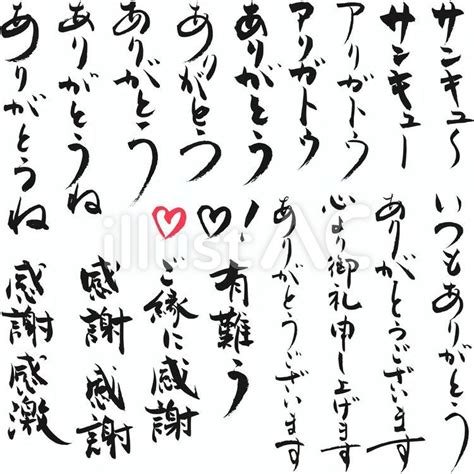 サンキュ〜
サンキュー
アリガトゥ
アリガトゥ
ありがとう
ありがとう
ありがとう
ありがとうね
ありがとうね
いつもありがとう
ありがとうございます
心より御礼申し上げます
ありがとうございます
！
有難う
ご縁に感謝
感謝
感謝
感謝感激
illustAC